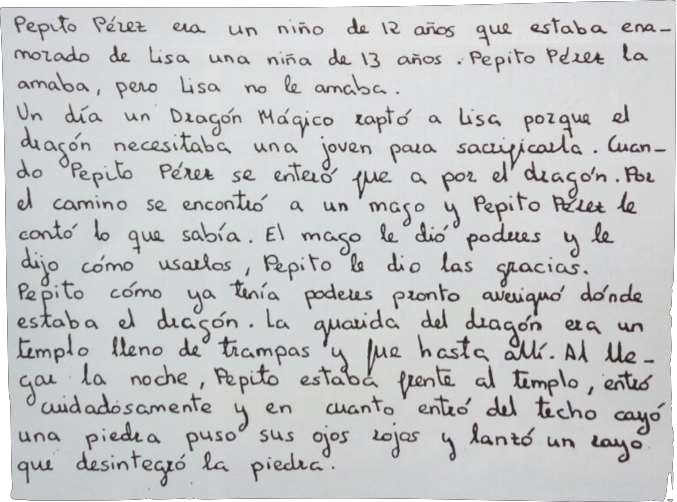 Pepito Pérez era un niño de 12 años que estaba ena-
morado de Lisa una niña de 13 años. Pepito Pérez la
amaba, pero Lisa no le amaba.
Un día un Dragón Mágico raptó a Lisa porque el
dragón necesitaba una joven para sacrificarla. Cuan-
do Pepito Pérez se enteró fue a por el dragón. Por
el camino se encontró a un mago y Pepito Pérez le
contó lo que sabía. El mago le dió poderes y le
dijo cómo usarlos, Pepito le dio las gracias.
Pepito cómo ya tenía poderes pronto averiguó dónde
estaba el dragón. La guarida del dragón era un
templo lleno de trampas y fue hasta allí. Al lle-
gar la noche, Pepito estaba frente al templo, entró
cuidadosamente y en cuanto entró del techo cayó
una piedra puso sus ojos rojos y lanzó un rayo
que desintegró la piedra.